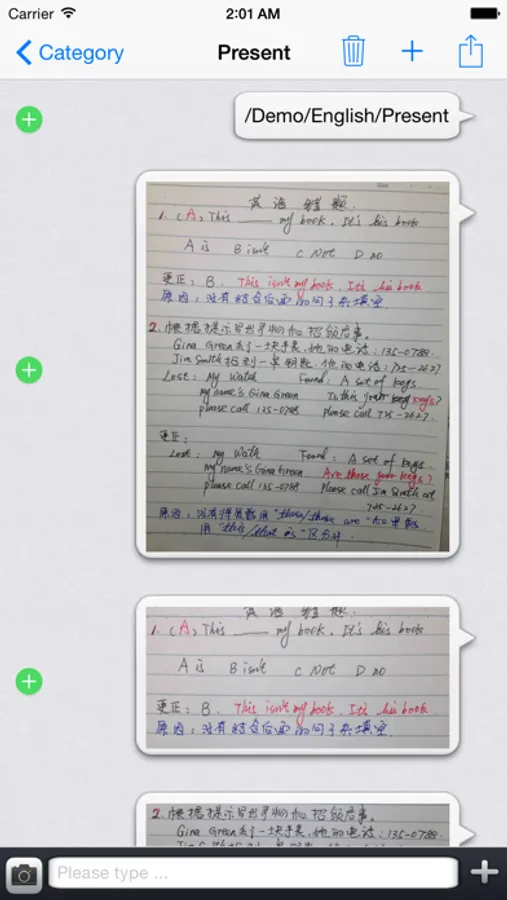 Carrier 2:01 AM
Category Present
/Demo/English/Present
英语错题.
1. (A) This ____ my book. It's his book
A is B isn't C Not D no
更正: B. This isn't my book. It's his book
原因: 没有结合后面的句子来填空.
2. 根据提示写出寻物和招领启事。
Gina Green丢了一块手表,她的电话:135-0788.
Jim Smith捡到一串钥匙,他的电话:725-2627
Lost: My Watch Found: A set of keys.
my name's Gina Green Is this your key keys?
please call 135-0788 Please call 725-2627.
更正:
Lost: My Wath Found: A set of keys.
my name's Gina Green Are those your keys?
please call 135-0788 Please call Jim Smith at
725-2627
原因: 没有得复数用"these/those are"和单数
用"this/that is"区分开.
英语错题.
1. (A) This ____ my book. It's his book
A is B isn't C Not D no
更正: B. This isn't my book. It's his book.
原因: 没有结合后面的句子来填空
2. 根据提示写出寻物和招领启事。
Gina Green丢了一块手表,她的电话:135-0788.
Please type ...